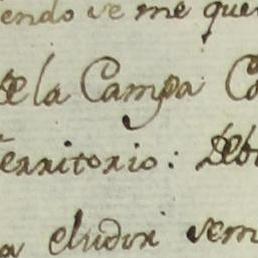 endo se me que
de la Campa Co
territorio: Deb
a eludir sem